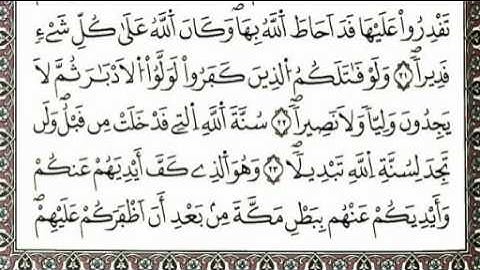 تَقْدِرُواْ عَلَيْهَا قَدَ اَحَاطَ اَللَّهُ بِهَاۖ وَكَانَ اَللَّهُ عَلَىٰ كُلِّ شَےْءٖ
قَدِيراٗۖ ٢١ وَلَوْ قَٰتَلَكُمُ اُلذِينَ كَفَرُواْ لَوَلَّوُاْ اُلَادْبَٰرَ ثُمَّ لَا
يَجِدُونَ وَلِيّاٗ وَلَا نَصِيراٗۖ ٢٢ سُنَّةَ اَللَّهِ اِلتِے قَدْ خَلَتْ مِن قَبْلُۖ وَلَن
تَجِدَ لِسُنَّةِ اِللَّهِ تَبْدِيلاٗۖ ٢٣ وَهُوَ اَلذِے كَفَّ أَيْدِيَهُمْ عَنكُمْ
وَأَيْدِيَكُمْ عَنْهُم بِبَطْنِ مَكَّةَ مِنۢ بَعْدِ أَنَ اَظْفَرَكُمْ عَلَيْهِمْۖ